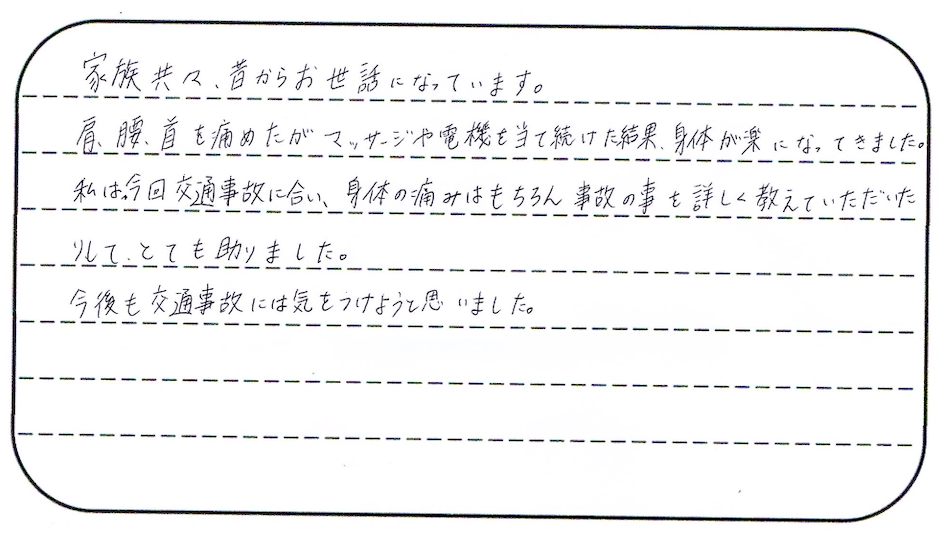 家族共々、昔からお世話になっています。
肩、腰、首を痛めたがマッサージや電機を当て続けた結果、身体が楽になってきました。
私は、今回交通事故に合い、身体の痛みはもちろん事故の事を詳しく教えていただいた
りして、とても助りました。
今後も交通事故には気をつけようと思いました。